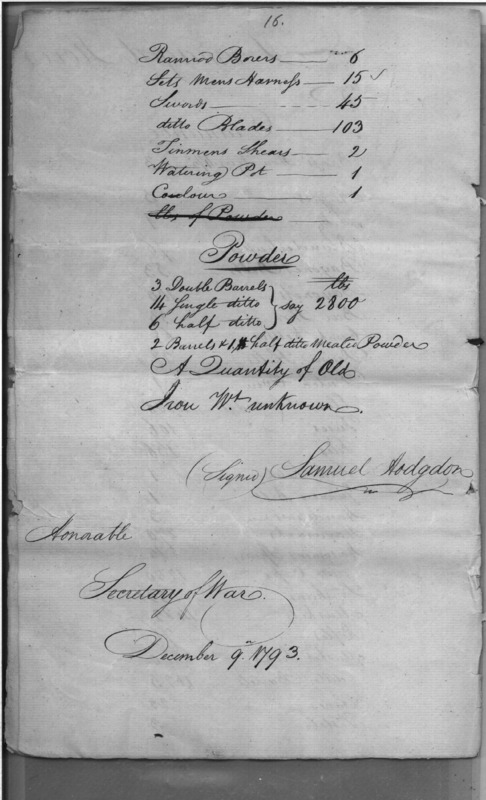 16.
Ramrod Borers 6
Sets Mens Harness 15
Swords 45
ditto Blades 103
Tinmens Shears 2
Watering Pot 1
1
lbs of Powder
Powder
3 Double Barrels lbs
14 Single ditto } say 2800
6 half ditto
2 Barrels & 1 half ditto Mealed Powder
A Quantity of Old
Iron Wt. unknown.
(Signed) Samuel Hodgdon
Honorable
Secretary of War.
December 9th 1793.